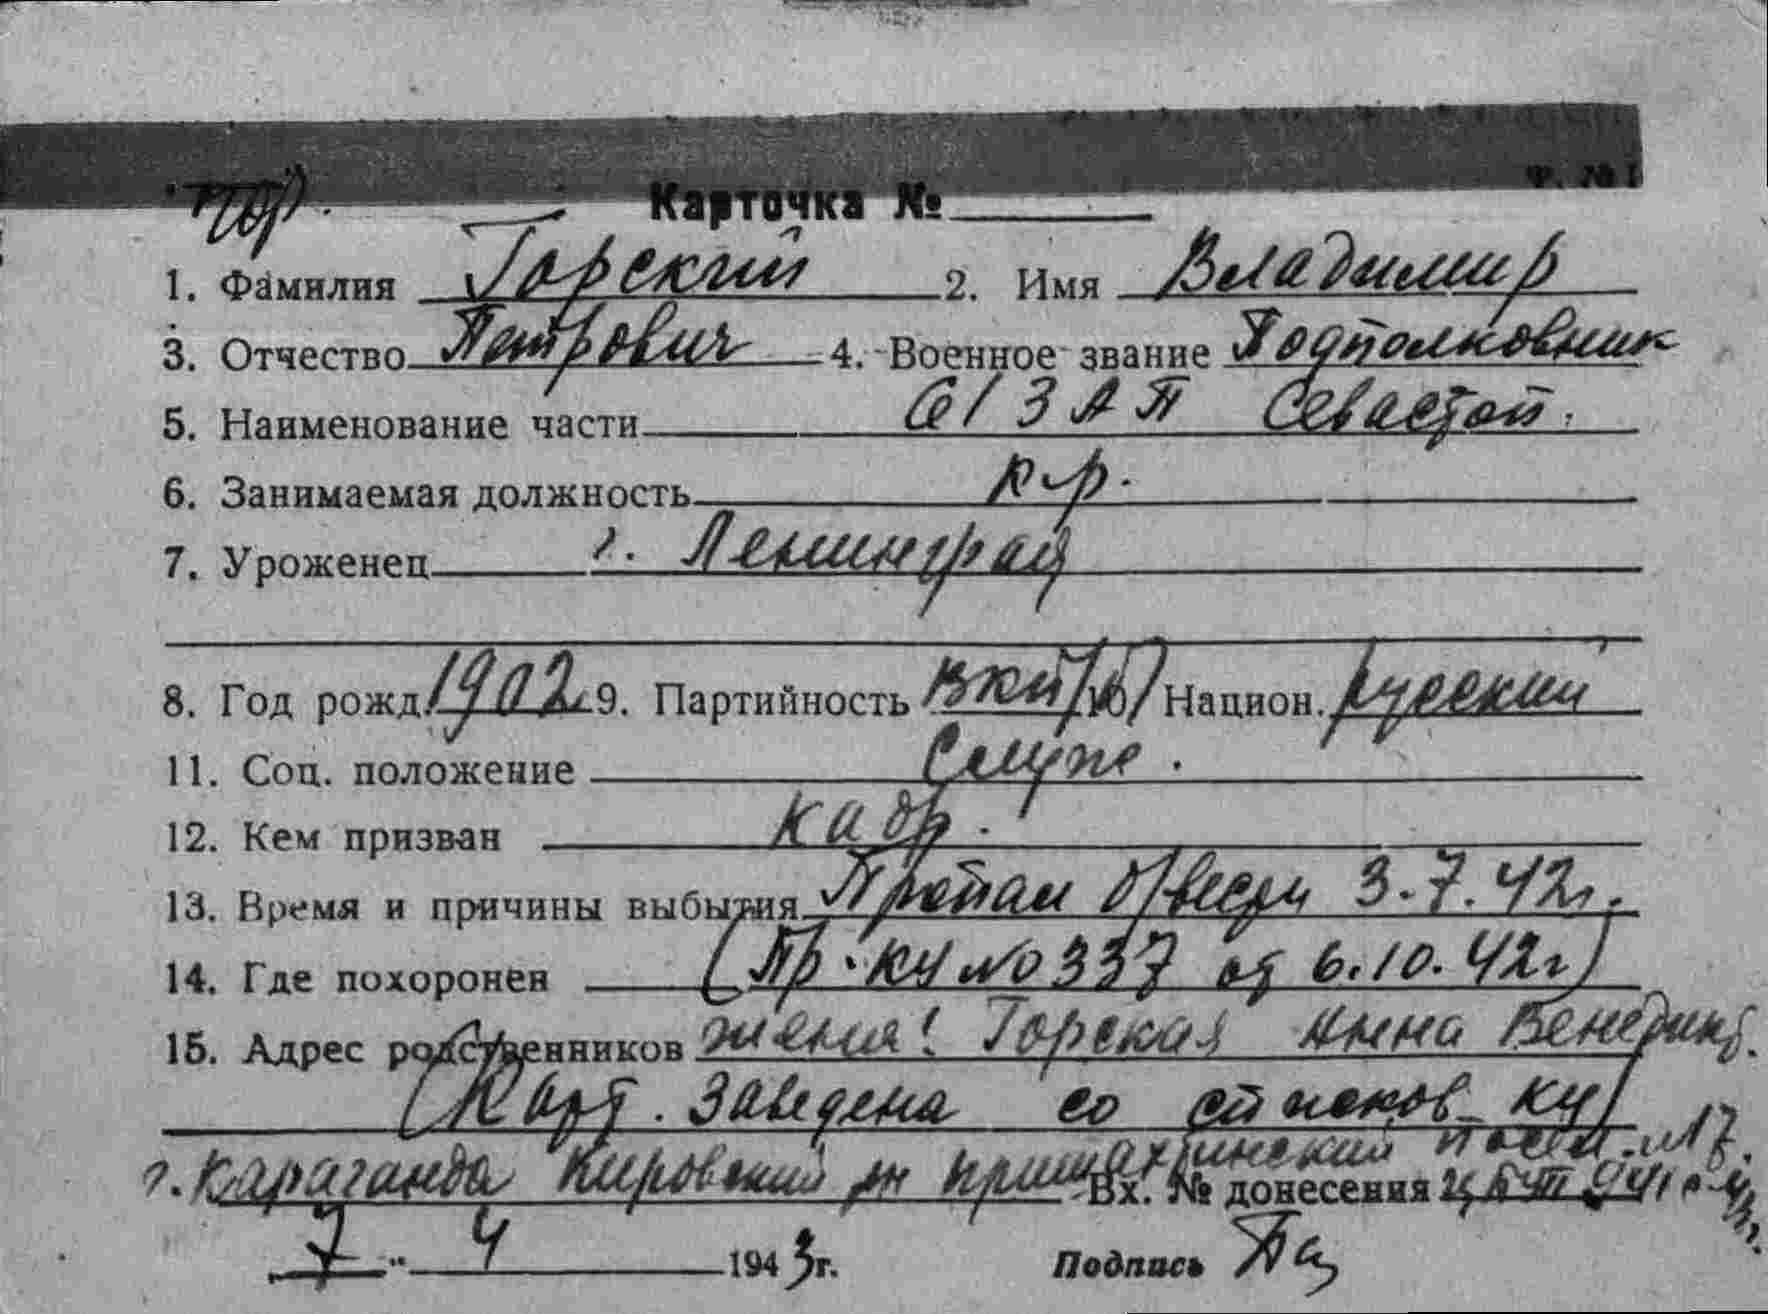 Ф. № 1
Гор.
Карточка №
1. Фамилия Горский 2. Имя Владимир
3. Отчество Петрович 4. Военное звание Подполковник
5. Наименование части 61 ЗАП Севастоп.
6. Занимаемая должность к-р.
7. Уроженец г. Ленинград
8. Год рожд. 1902 9. Партийность ВКП/б/ 10 Национ. русский
11. Соц. положение Служ.
12. Кем призван кадр.
13. Время и причины выбытия Пропал б/вести 3.7.42г.
14. Где похоронен (Пр. КУ № 337 от 6.10.42г)
15. Адрес родственников жена: Горская Анна Венедикт.
(Карт. заведена со списков КУ)
г. Караганда Кировский рн Пришахтинский посел. № 17.
Вх. № донесения
7 " 4 1943 г. Подпись